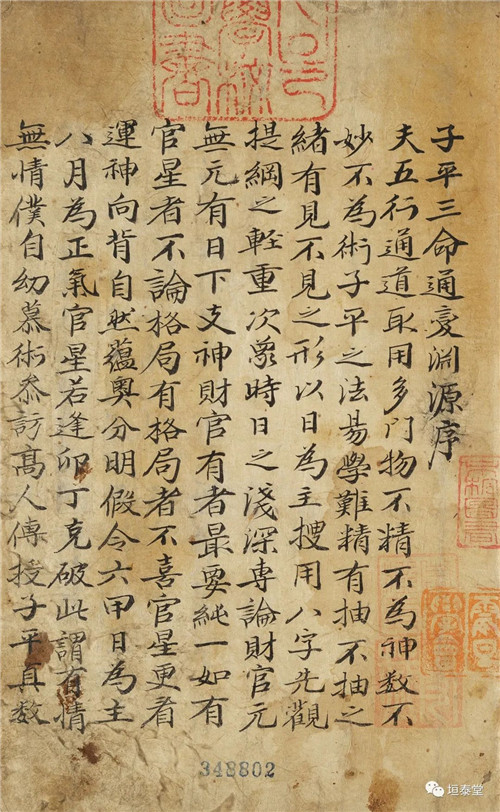 子平三命通變淵源序
夫五行通道取用多門物不精不為神数不
妙不為術子平之法易學難精有抽不抽之
緒有見不見之形以日為主搜用八字先觀
提綱之輕重次察時日之淺深專論財官元
無元有日下支神財官有者最要純一如有
官星者不論格局有格局者不喜官星更看
運神向背自然蘊奥分明假令六甲日為主
八月為正氣官星若逢卯丁克破此謂有情
無情僕自幼慕術叅訪髙人傳授子平真数
348802
垣泰堂